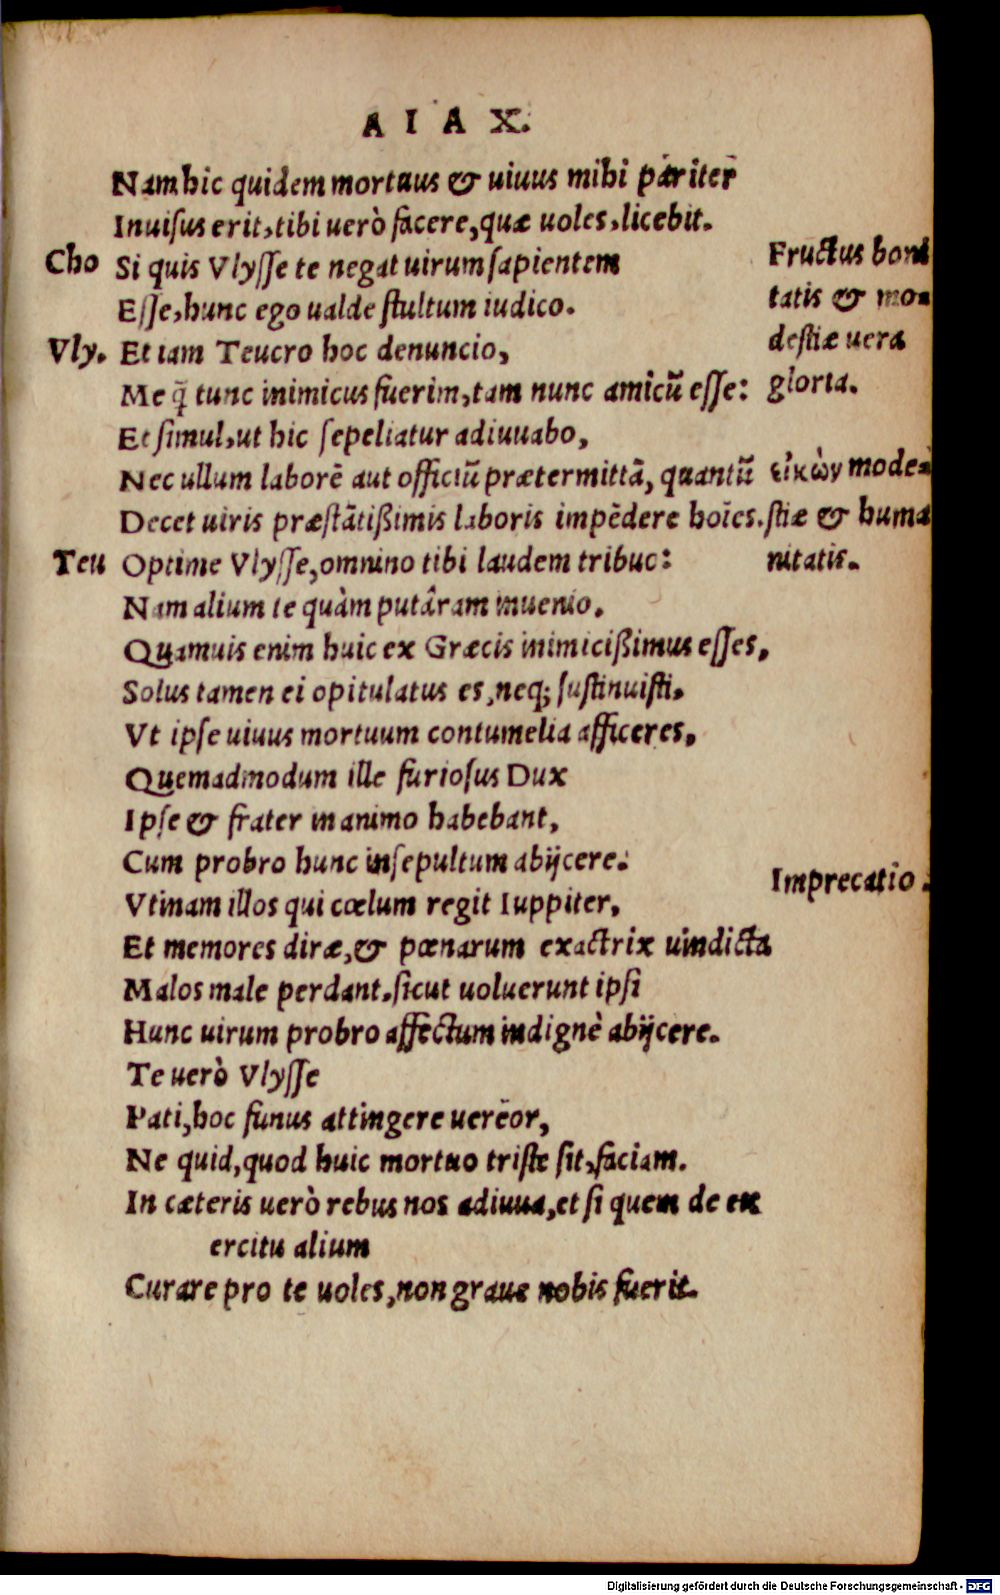 AIAX.
Nam hic quidem mortuus & uiuus mihi páriter
Inuiſus erit, tibi uerò facere, quæ uoles, licebit.
Cho Si quis Vlyſſe te negat uirum ſapientem
Fructus boni
Eſſe, hunc ego ualde ſtultum iudico.
tatis & mo-
Vly. Et iam Teucro hoc denuncio,
deſtiæ uera
Me q̃ tunc inimicus fuerim, tam nunc amicũ eſſe:
gloria.
Et ſimul, ut hic ſepeliatur adiuuabo,
Nec ullum laborẽ aut officiũ prætermittã, quantũ
εἰκὼν mode-
Decet uiris præſtãtißimis laboris impẽdere hoĩes.
ſtiæ & huma
Teu Optime Vlyſſe, omnino tibi laudem tribuc:
nitatis.
Nam alium te quàm putâram inuenio.
Quamuis enim huic ex Græcis inimicißimus eſſes,
Solus tamen ei opitulatus es, neq; ſuſtinuiſti,
Vt ipſe uiuus mortuum contumelia afficeres,
Quemadmodum ille furioſus Dux
Ipſe & frater in animo habebant,
Cum probro hunc inſepultum abijcere.
Imprecatio.
Vtinam illos qui cœlum regit Iuppiter,
Et memores diræ, & pœnarum exactrix uindicta
Malos male perdant. ſicut uoluerunt ipſi
Hunc uirum probro affectum indignè abijcere.
Te uerò Vlyſſe
Pati, hoc funus attingere uereor,
Ne quid, quod huic mortuo triſte ſit, faciam.
In cæteris uerò rebus nos adiuua, et ſi quem de ex
ercitu alium
Curare pro te uoles, non graue nobis fuerit.
Digitalisierung gefördert durch die Deutsche Forschungsgemeinschaft - DFG